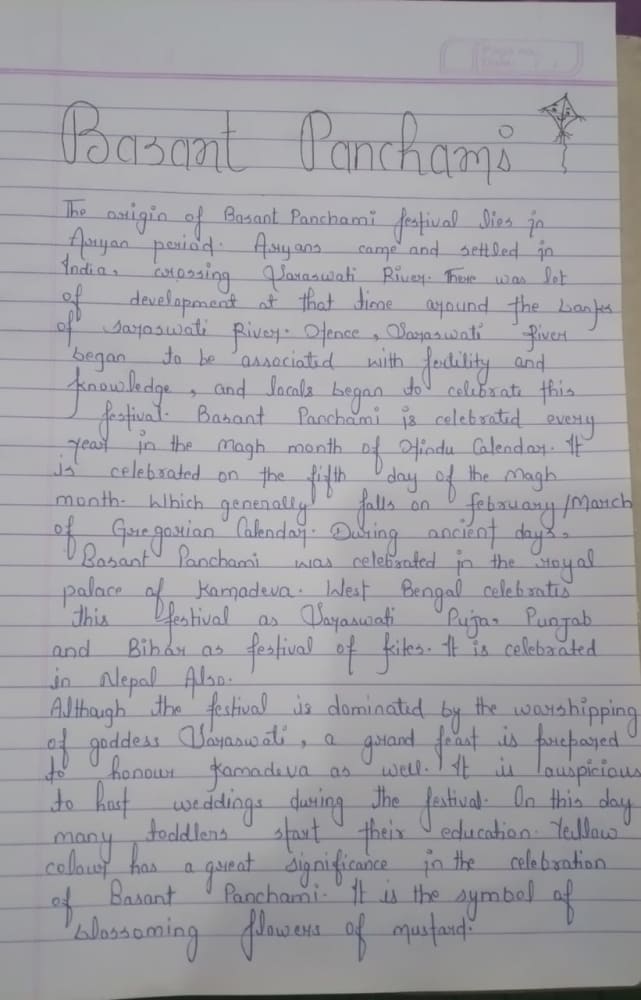 Basant Panchami
The origin of Basant Panchami festival lies in
Aryan period. Aryans came and settled in
India, crossing Saraswati River. There was lot
of development at that time around the banks
of Saraswati River. Hence, Saraswati River
began to be associated with fertility and
knowledge, and locals began to celebrate this
festival. Basant Panchami is celebrated every
year in the magh month of Hindu Calendar. It
is celebrated on the fifth day of the magh
month. Which generally falls on february/March
of Gregorian Calendar. During ancient days,
Basant Panchami was celebrated in the royal
palace of Kamadeva. West Bengal celebrates
this festival as Saraswati Puja, Punjab
and Bihar as festival of kites. It is celebrated
in Nepal Also.
Although the festival is dominated by the worshipping
of goddess Saraswati, a grand feast is prepared
to honour Kamadeva as well. It is auspicious
to host weddings during the festival. On this day
many toddlers start their education. Yellow
colour has a great significance in the celebration
of Basant Panchami. It is the symbol of
blossoming flowers of mustard.